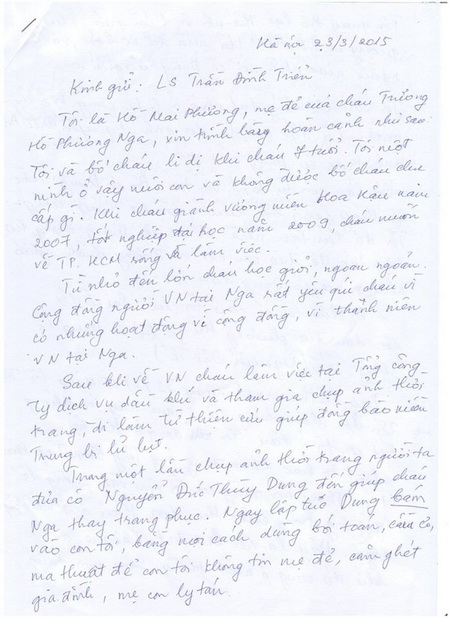 Hà nội 23/3/2015
Kính gửi: LS Trần Đình Triển
Tôi là Hồ Mai Phương, mẹ đẻ của cháu Trương
Hồ Phương Nga, xin trình bày hoàn cảnh như sau
Tôi và bố cháu li dị khi cháu 7 tuổi. Tôi một
mình ở vậy nuôi con và không được bố cháu chu
cấp gì. Khi cháu giành vương miện Hoa Hậu năm
2007, tốt nghiệp đại học năm 2009, cháu muốn
về TP. HCM sống và làm việc.
Từ nhỏ đến lớn cháu học giỏi, ngoan ngoãn.
Cộng đồng người VN tại Nga rất yêu quí cháu vì
có những hoạt động về cộng đồng, vì thanh niên
VN tại Nga.
Sau khi về VN cháu làm việc tại Tổng công
ty dịch vụ dầu khí và tham gia chụp ảnh thời
trang, đi làm từ thiện cứu giúp đồng bào miền
Trung bị lũ lụt.
Trong một lần chụp ảnh thời trang người ta
đưa cô Nguyễn Đức Thùy Dung đến giúp cháu
Nga thay trang phục. Ngay lập tức Dung bám
vào con tôi, bằng mọi cách dùng bói toán, cầu cô,
ma thuật để con tôi không tin mẹ đẻ, căm ghét
gia đình, mẹ con ly tán.